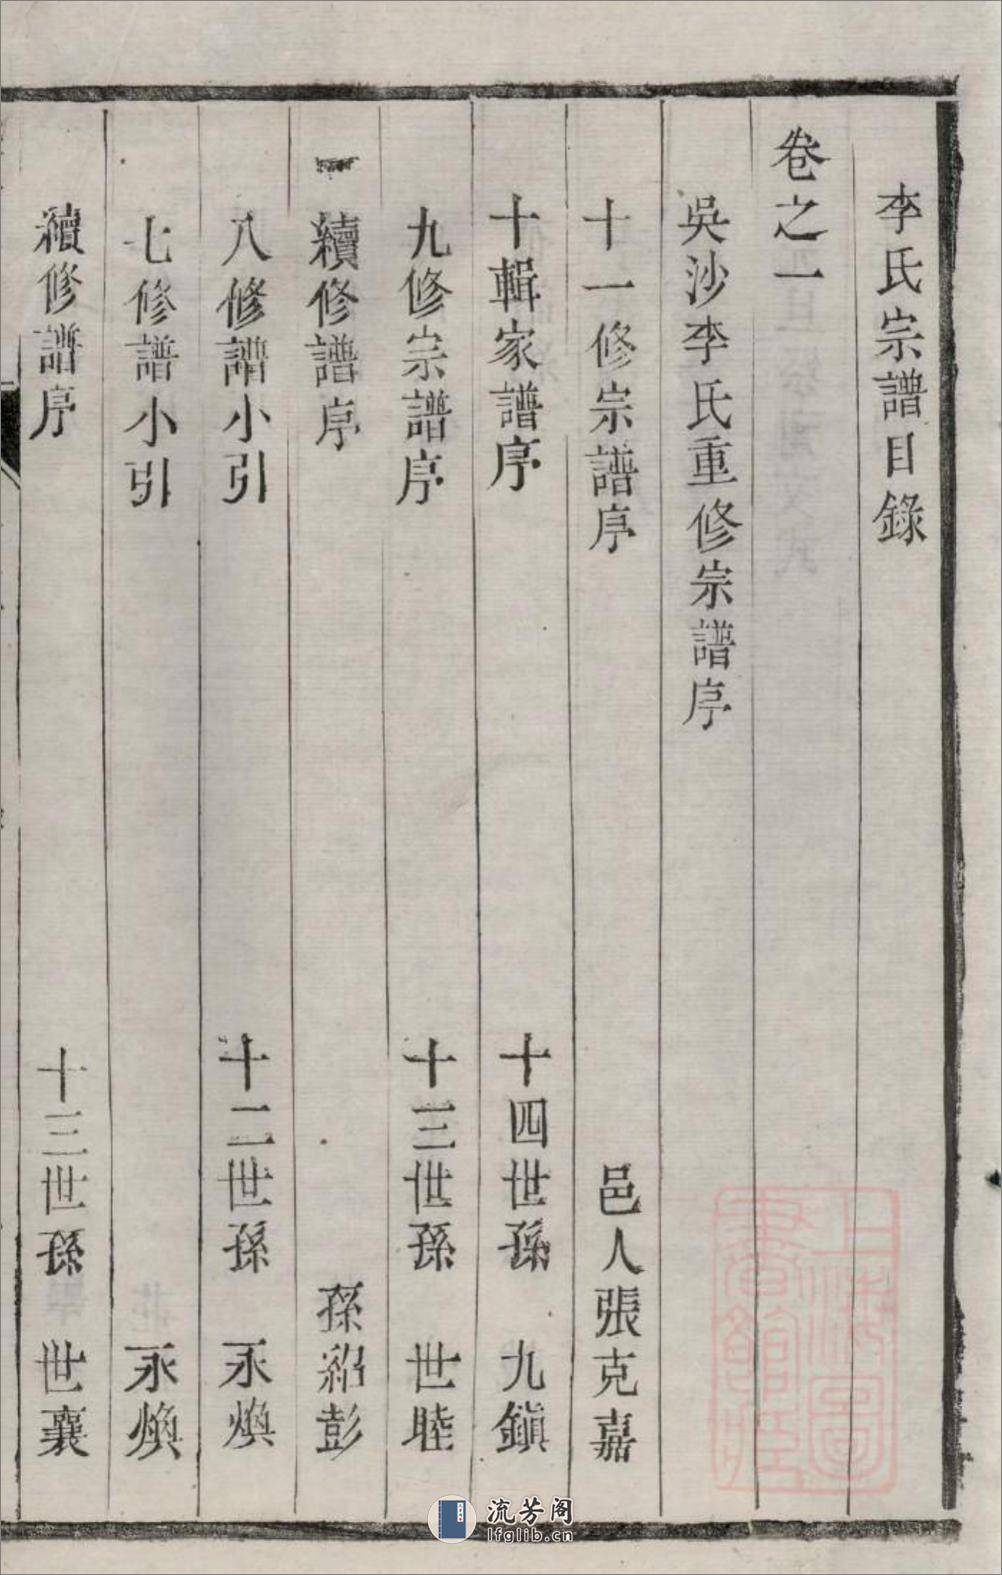 李氏宗譜目錄
卷之一
吳沙李氏重修宗譜序
十一修宗譜序　邑人張克嘉
十輯家譜序　十四世孫　九鎭
九修宗譜序　十三世孫　世睦
續修譜序　孫紹彭
八修譜小引　十二世孫　永煥
七修譜小引　永煥
續修譜序　十三世孫　世襄
上海圖書館藏
流芳阁
lfglib.cn